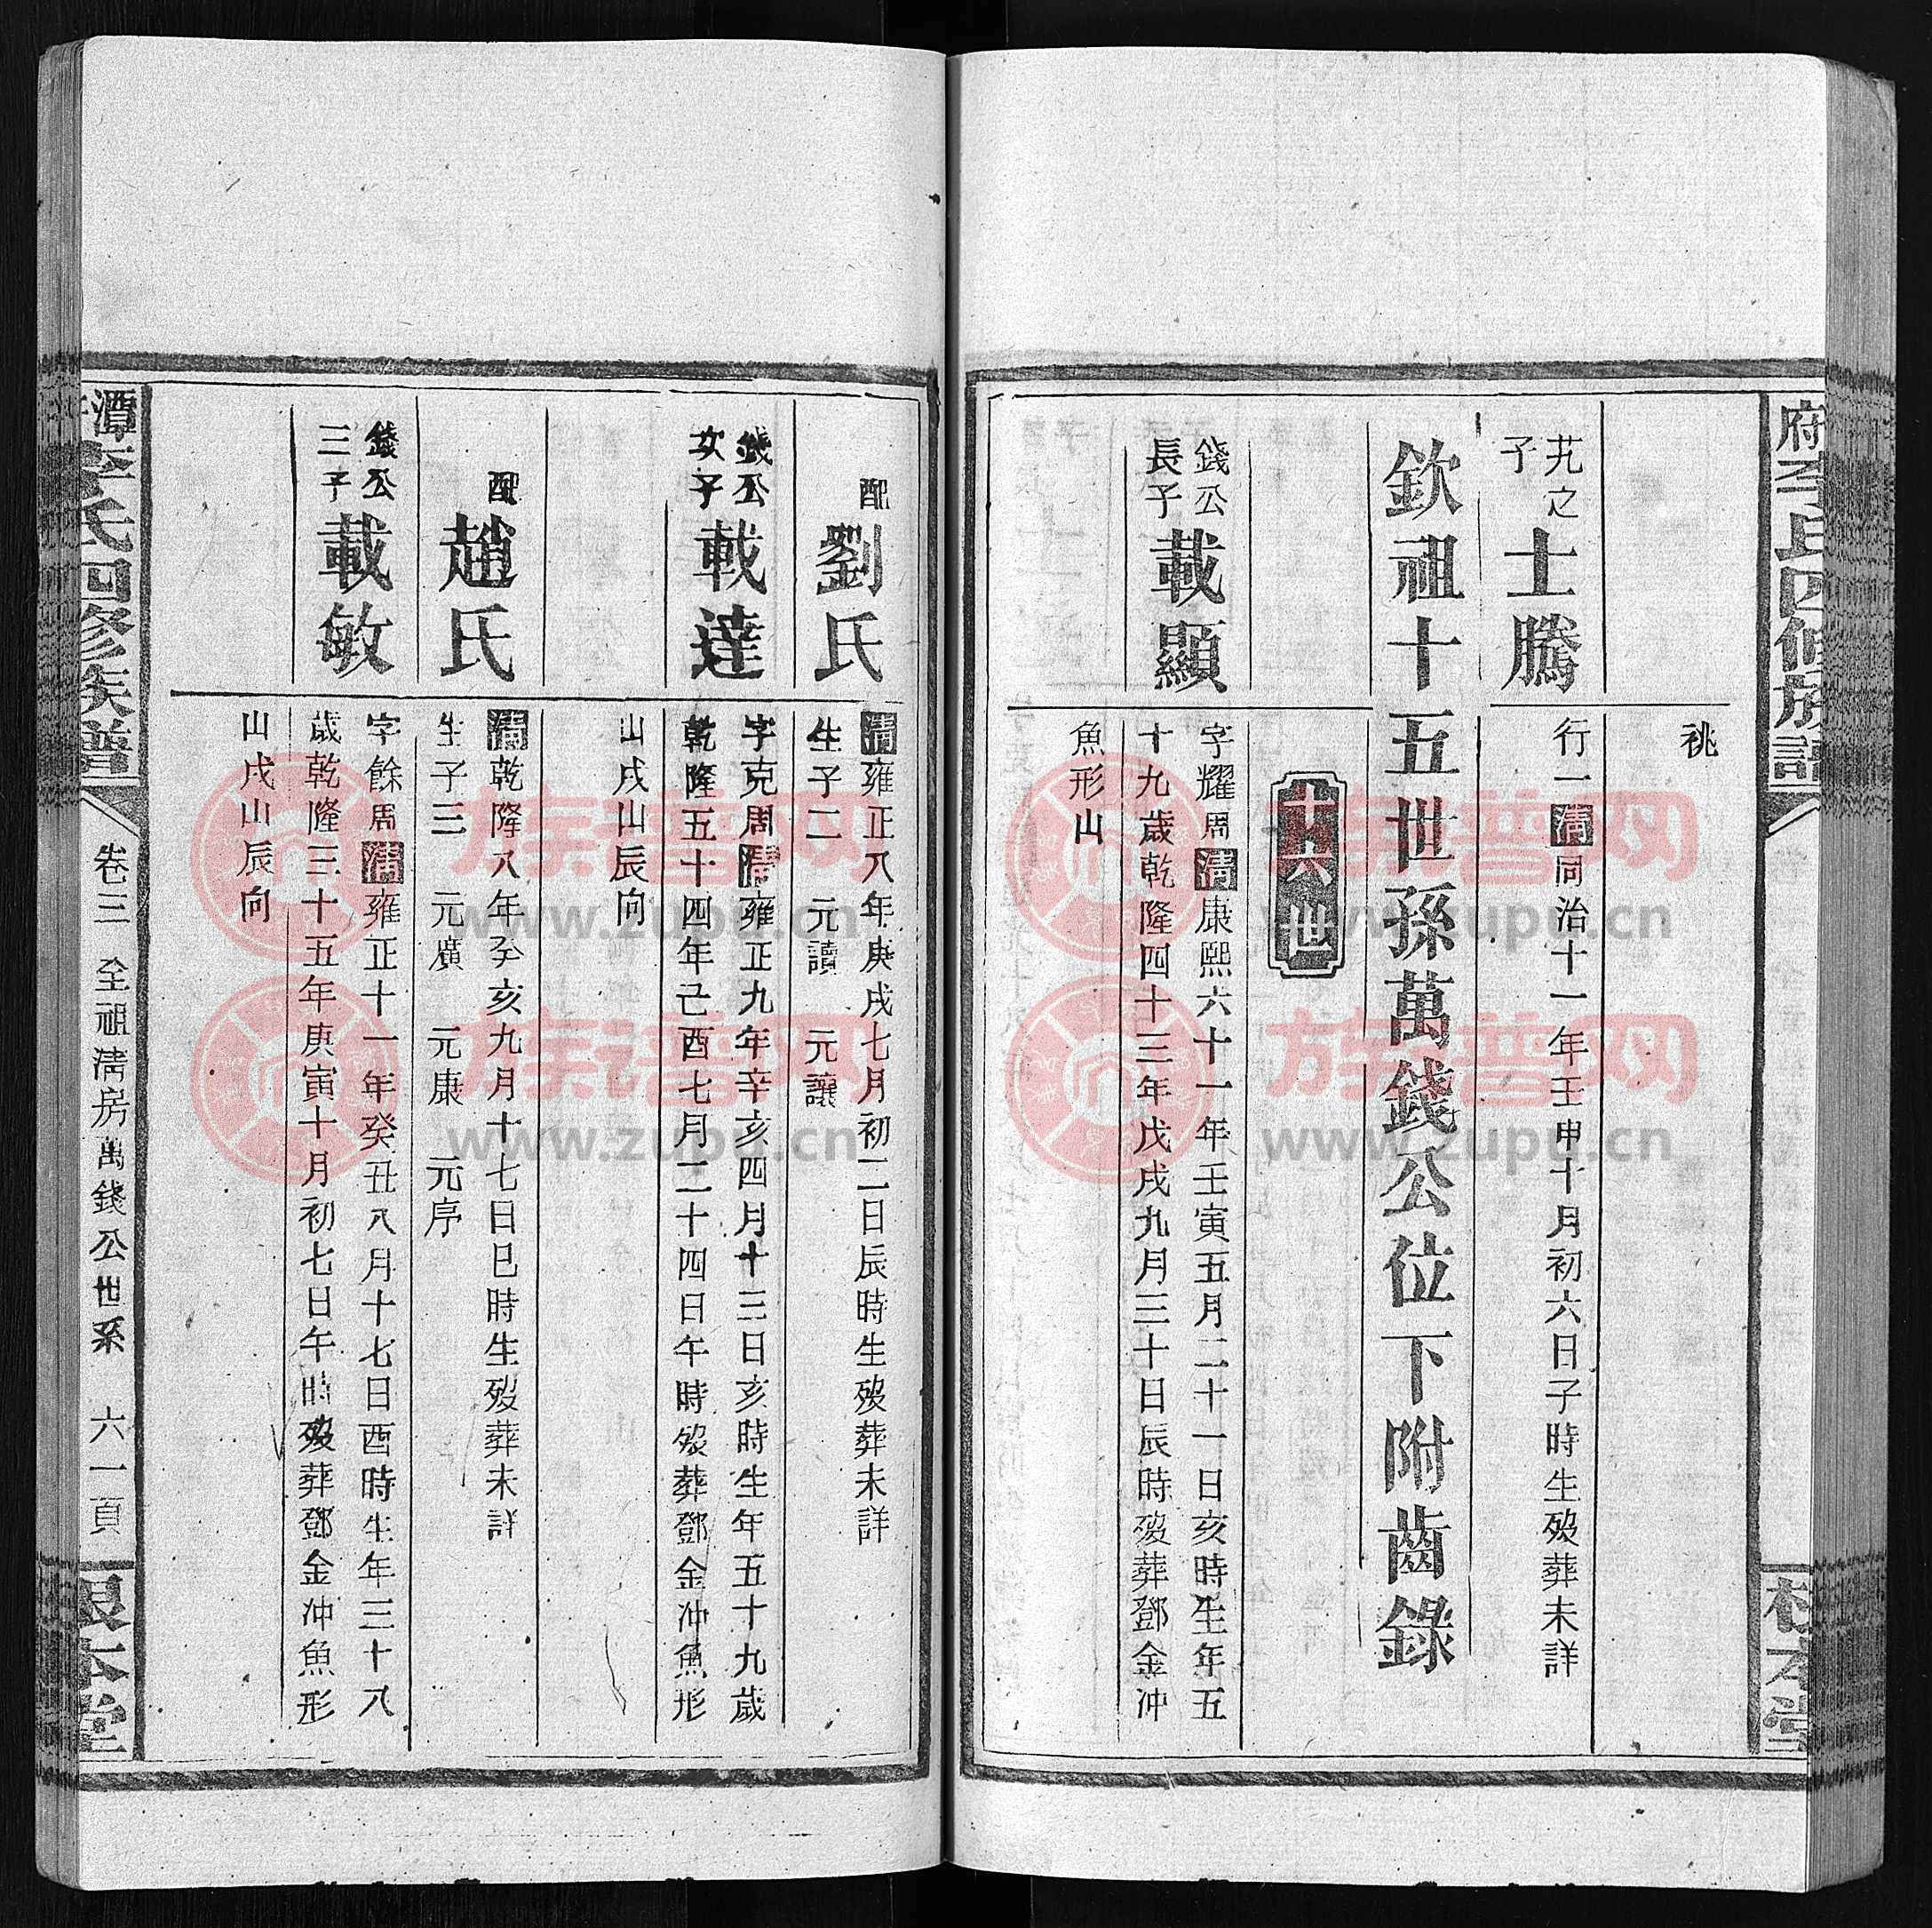 府李氏四修族譜
根本堂
祧
芃之
子
士騰
行一清同治十一年壬申十月初六日子時生歿葬未詳
欽祖十五世孫萬錢公位下附齒錄
十六世
錢公
長子
載顯
字耀周清康熙六十一年壬寅五月二十一日亥時生年五
十九歲乾隆四十三年戊戌九月三十日辰時歿葬鄧金沖
魚形山
配
劉氏
清雍正八年庚戌七月初二日辰時生歿葬未詳
生子二 元讀 元讓
錢公
次子
載達
字克周清雍正九年辛亥四月十三日亥時生年五十九歲
乾隆五十四年己酉七月二十四日午時歿葬鄧金沖魚形
山戌山辰向
配
趙氏
清乾隆八年癸亥九月十七日巳時生歿葬未詳
生子三 元廣 元康 元序
錢公
三子
載敏
字餘周清雍正十一年癸丑八月十七日酉時生年三十八
歲乾隆三十五年庚寅十月初七日午時歿葬鄧金沖魚形
山戌山辰向
潭李氏四修族譜
卷三 全祖清房萬錢公世系 六一頁
根本堂
族譜网
www.zupu.cn
族譜网
www.zupu.cn
族譜网
www.zupu.cn
族譜网
www.zupu.cn